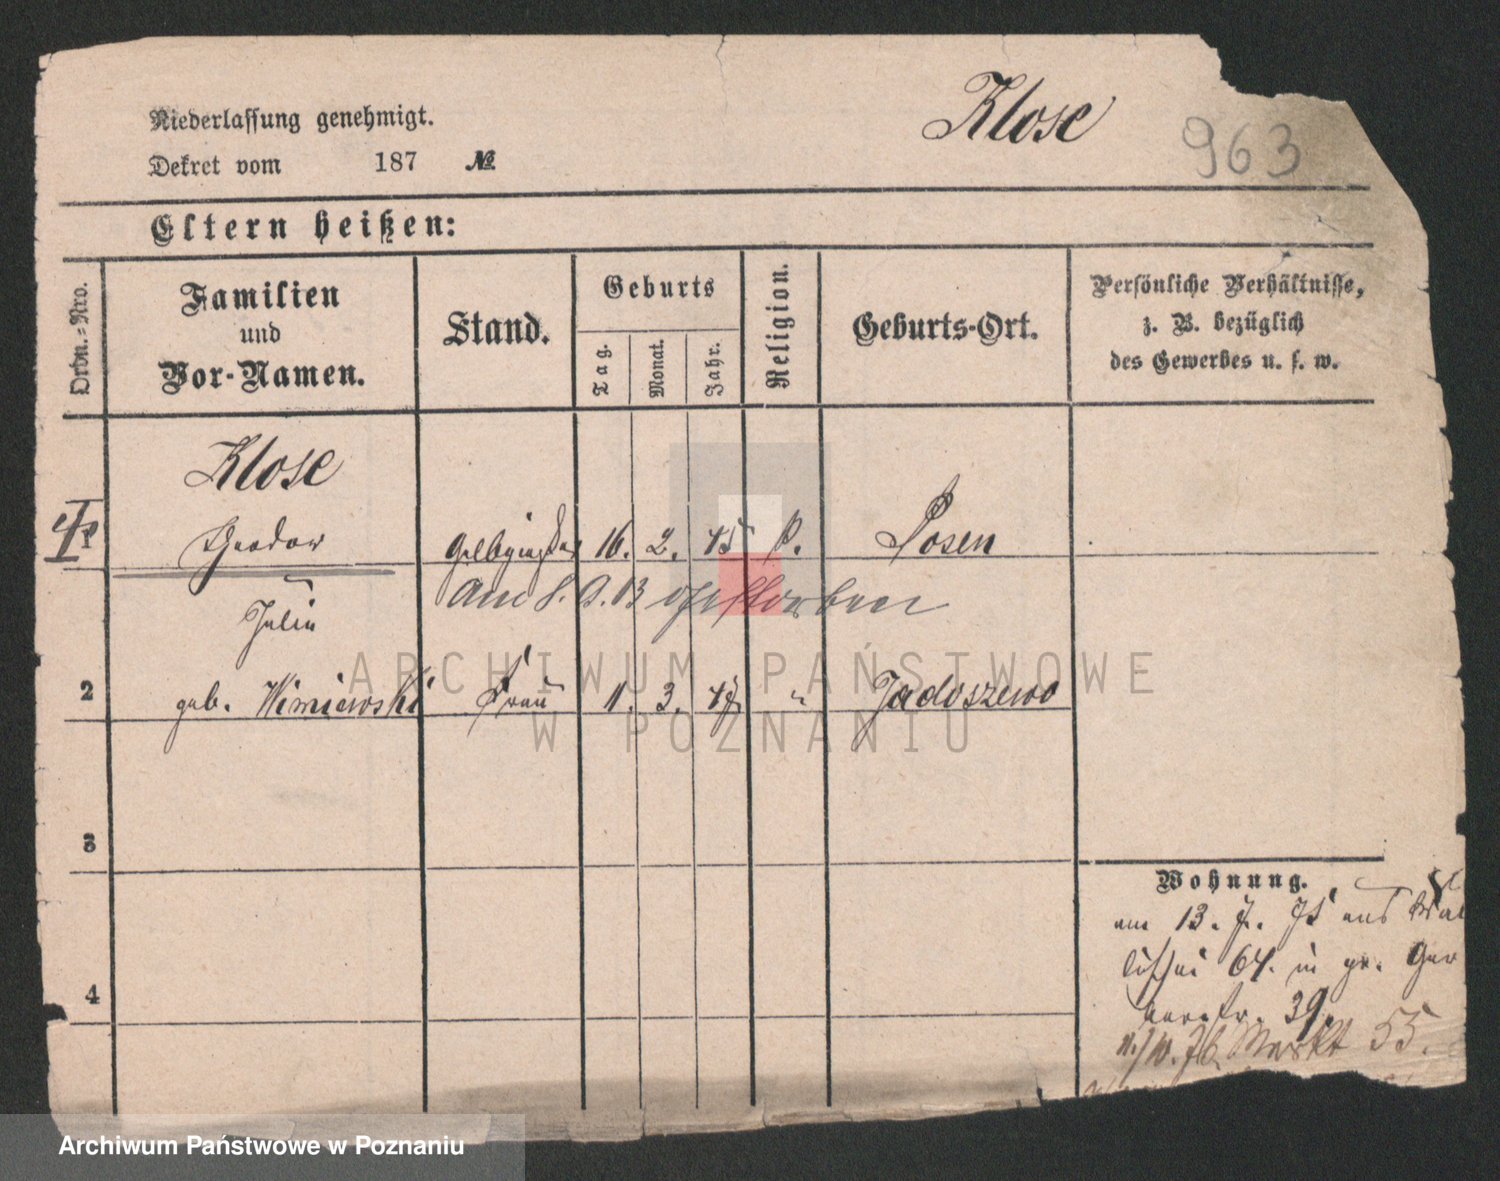 Klose
963
Niederlassung genehmigt.
Dekret vom 187 №
Eltern heißen:
Ordn.-Nro.
Familien
und
Vor-Namen.
Stand.
Geburts
Tag.
Monat.
Jahr.
Religion.
Geburts-Ort.
Persönliche Verhältnisse,
z. B. bezüglich
des Gewerbes u. s. w.
Klose
1 Theodor Gelbgießer 16. 2. 45 k. Posen
Am 8. 9. 13 gestorben
Julie
2 geb. Wisniewski Frau 11. 3. " Jadoszewo
3
4
Wohnung.
am 13. 7. 75 aus Wal
lischei 64. in gr. Ger
berstr. 39.
Markt 55.
ARCHIWUM PAŃSTWOWE
W POZNANIU
Archiwum Państwowe w Poznaniu